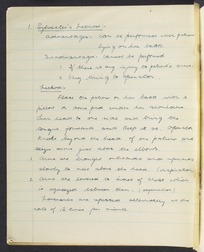 1. Sylvester's Method.
Advantages: Can be performed when patient
lying on his back.
Disadvantages: Cannot be performed
1. If there is any injury to patient's arms.
2. Very tiring to operator.
Method.
Place the person on his back with a
pillow or some pad under his shoulders.
Turn head to one side and bring the
tongue forwards and keep it so. Operator
kneels beyond the head of the patient and
arms just above the elbows.
1. Arms are brought outwards and upwards
slowly to meet above the head. (inspiration)
2. Arms are lowered to sides of chest which
is squeezed between them. (expiration)
Movements are repeated alternately at the
rate of 15 times per minute.